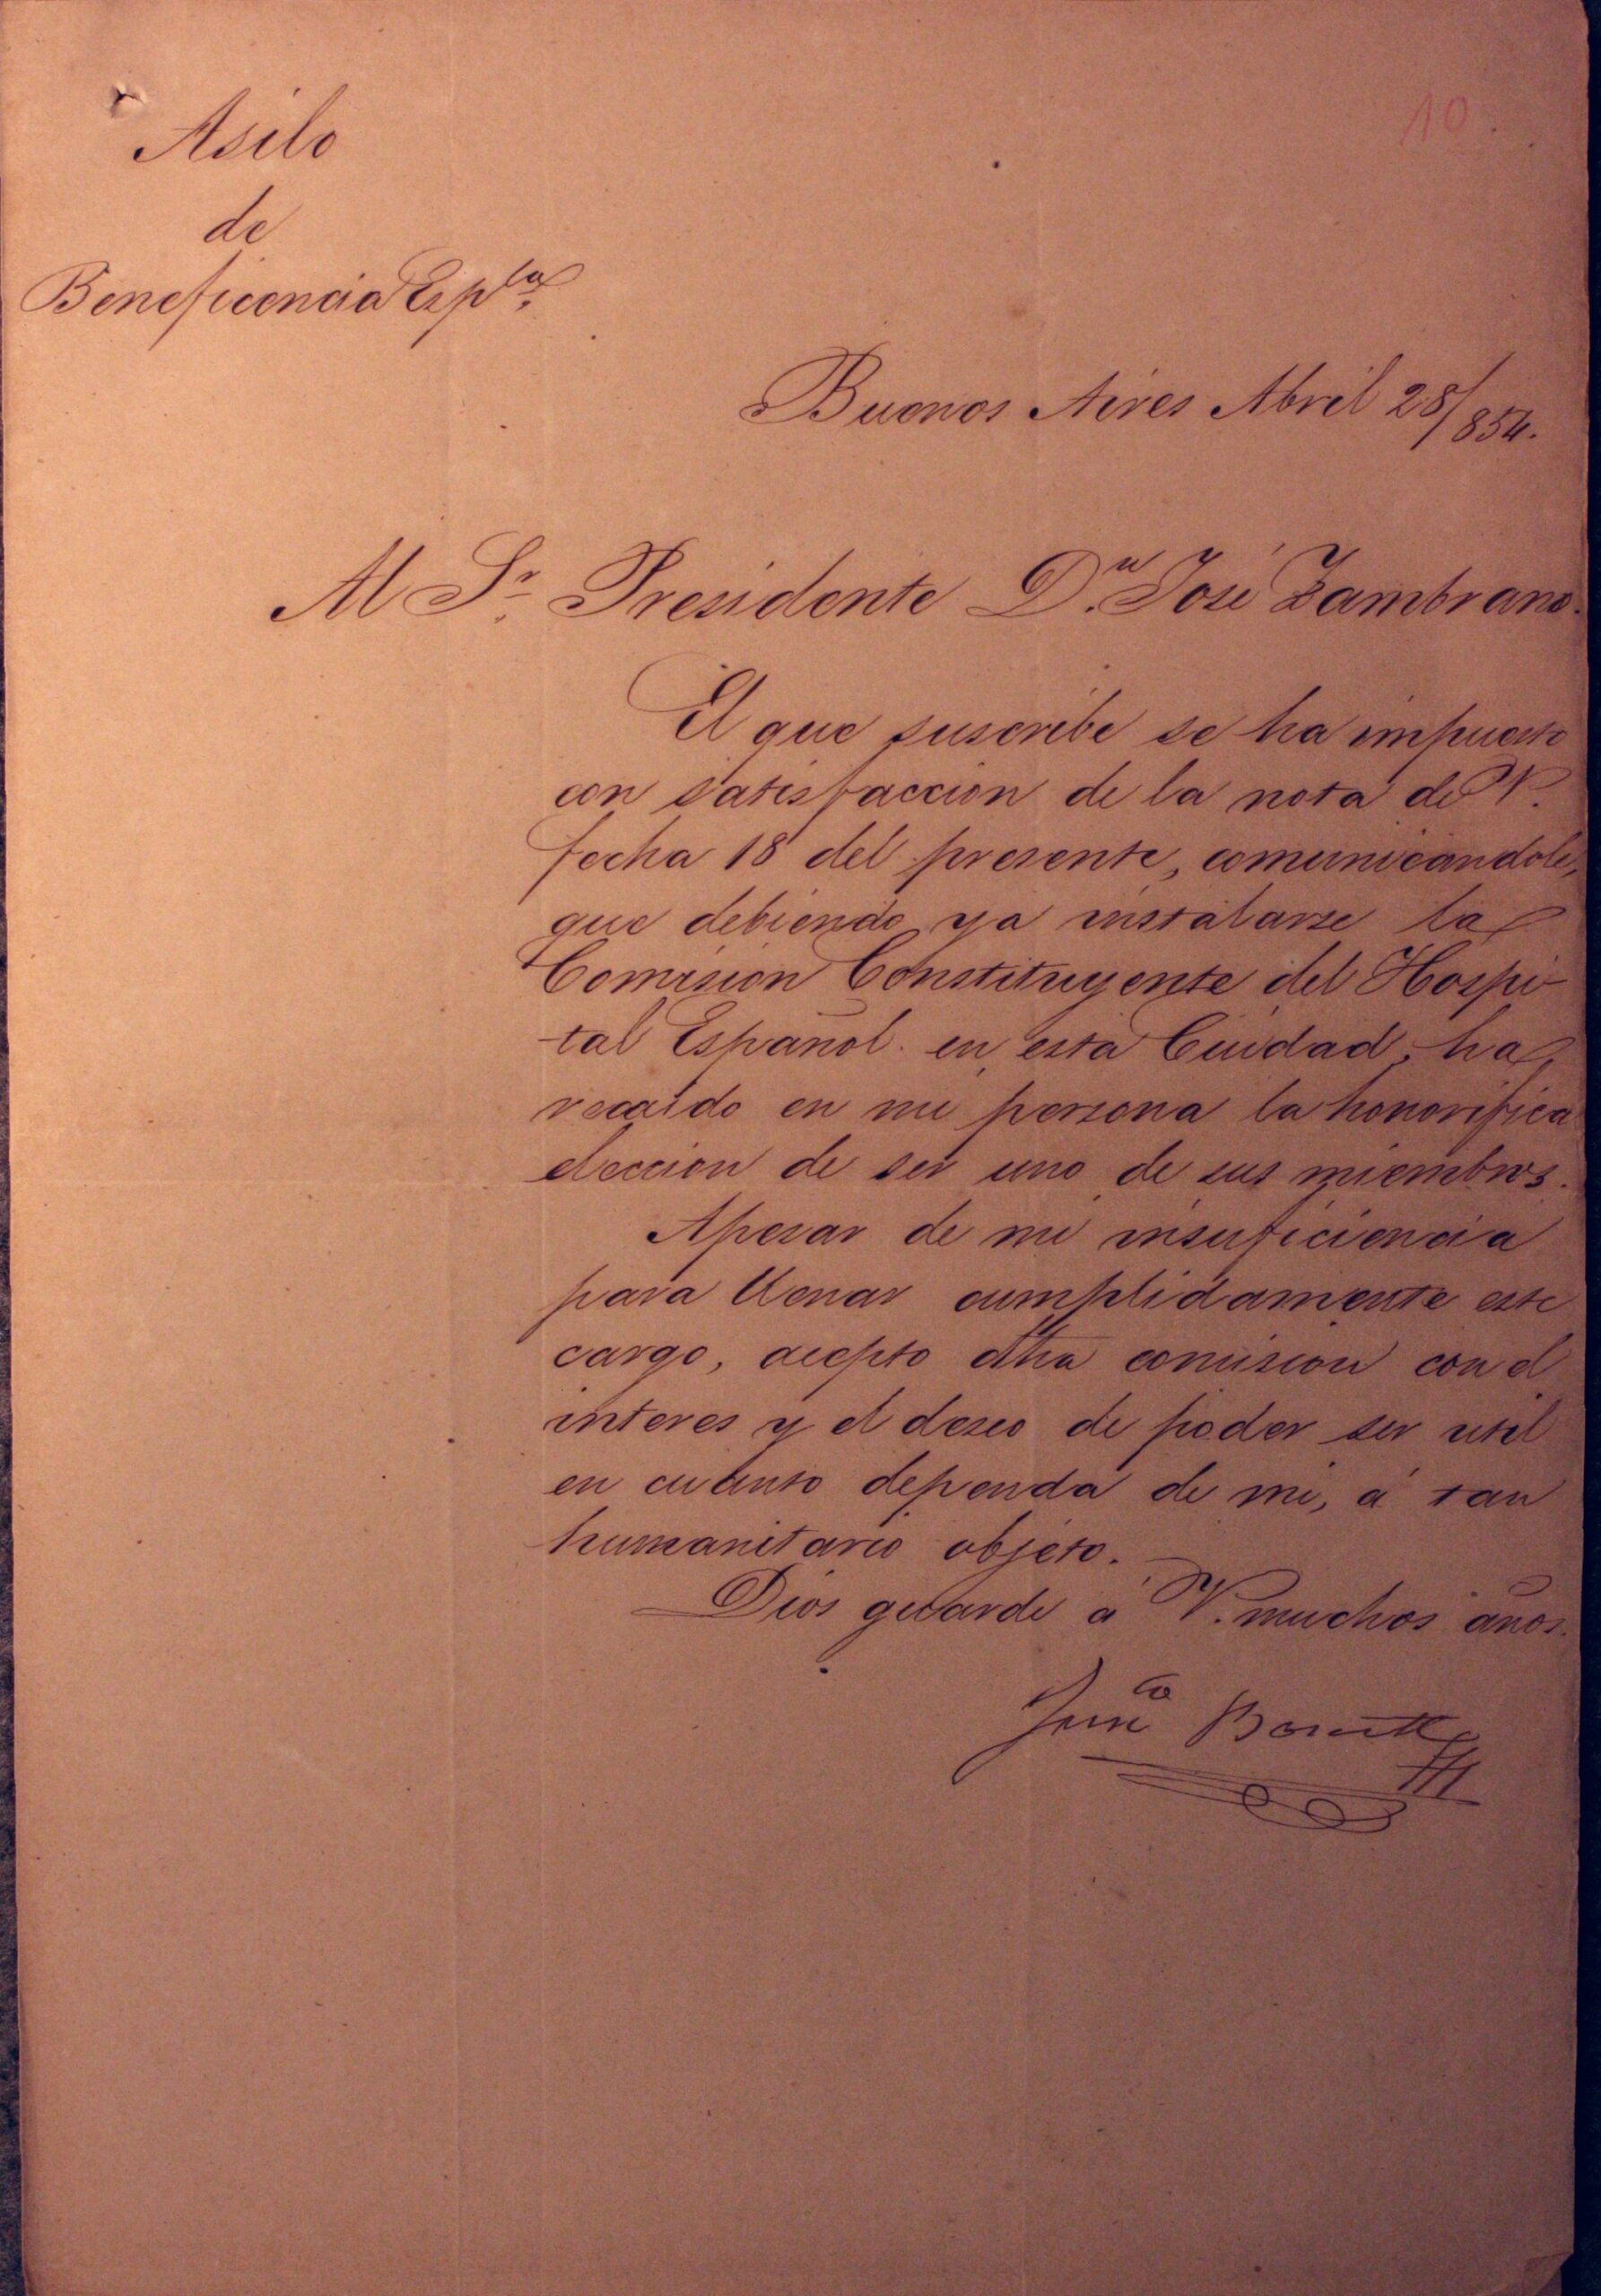 10
Asilo
de
Beneficencia Esp.la
Buenos Aires Abril 28/854.
Al Sr. Presidente D.n José Zambrano.
El que suscribe se ha impuesto
con satisfaccion de la nota de V.
fecha 18 del presente, comunicandole,
que debiendo ya instalarse la
Comision Constituyente del Hospi-
tal Español en esta Ciudad, ha
recaido en mi persona la honorifica
eleccion de ser uno de sus miembros.
Apesar de mi insuficiencia
para llenar cumplidamente este
cargo, acepto dha comision con el
interes y el deseo de poder ser util
en cuanto dependa de mi, á tan
humanitario objeto.
Dios guarde á V. muchos años.